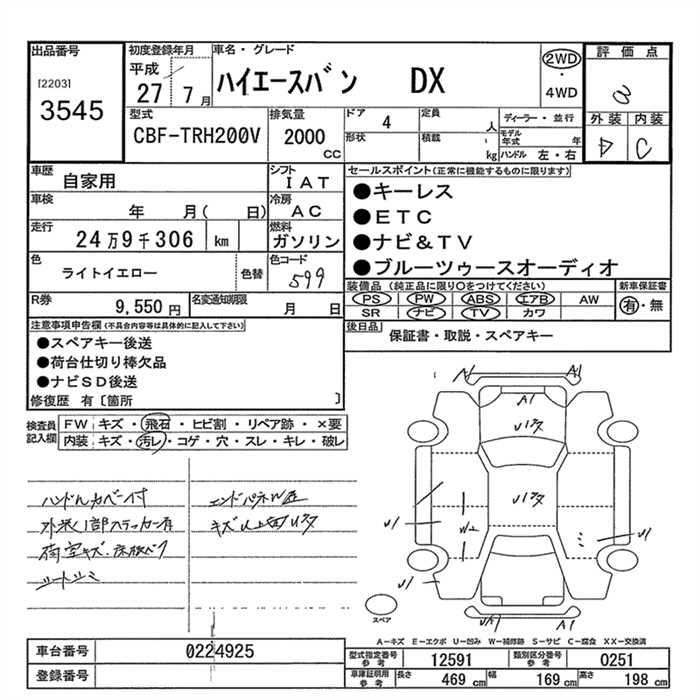 出品番号
[2203]
3545
初度登録年月
平成
27 7月
車名・グレード
ハイエースバン DX
2WD
・
4WD
評価点
外装 内装
C
型式
CBF-TRH200V
排気量
2000
CC
ドア 4
定員
人
形状
積載
kg
ディーラー・並行
モデル年式 年
ハンドル 左・右
車歴
自家用
シフト
IAT
車検
年 月( 日)
冷房
AC
走行
24万9千306 km
燃料
ガソリン
色
ライトイエロー
色替
色コード
599
R券
9,550円
名変通知期限
月 日
セールスポイント(正常に機能するものに限ります)
●キーレス
●ETC
●ナビ&TV
●ブルーツゥースオーディオ
装備品 (純正品に限り○をつけてください)
PS PW ABS エアB AW
SR ナビ TV カワ
新車保証書
有・無
後日品
保証書・取説・スペアキー
注意事項申告欄(不具合内容等は具体的に記入して下さい)
●スペアキー後送
●荷台仕切り棒欠品
●ナビSD後送
修復歴 有〔箇所 〕
検査員記入欄
FW キズ・飛石・ヒビ割・リペア跡・×要
内装 キズ・汚レ・コゲ・穴・スレ・キレ・破レ
ハンドルカバー付
外装1部ステッカー有
荷室キズ・床板ベク
シートシミ
エンドパネル歪
キズ
A1 A1
A1
U1
U1
U1
U1
U1
U1
A1
スペア
A-キズ E-エクボ U-凹み W-補修跡 S-サビ C-腐食 XX-交換済
車台番号
0224925
登録番号
型式指定番号 参考
12591
類別区分番号 参考
0251
車庫証明用 参考
長さ 469 cm
幅 169 cm
高さ 198 cm